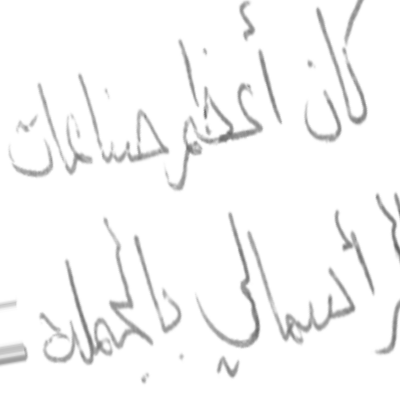 كان أعظم صناعات
الرأسمالي بالجملة